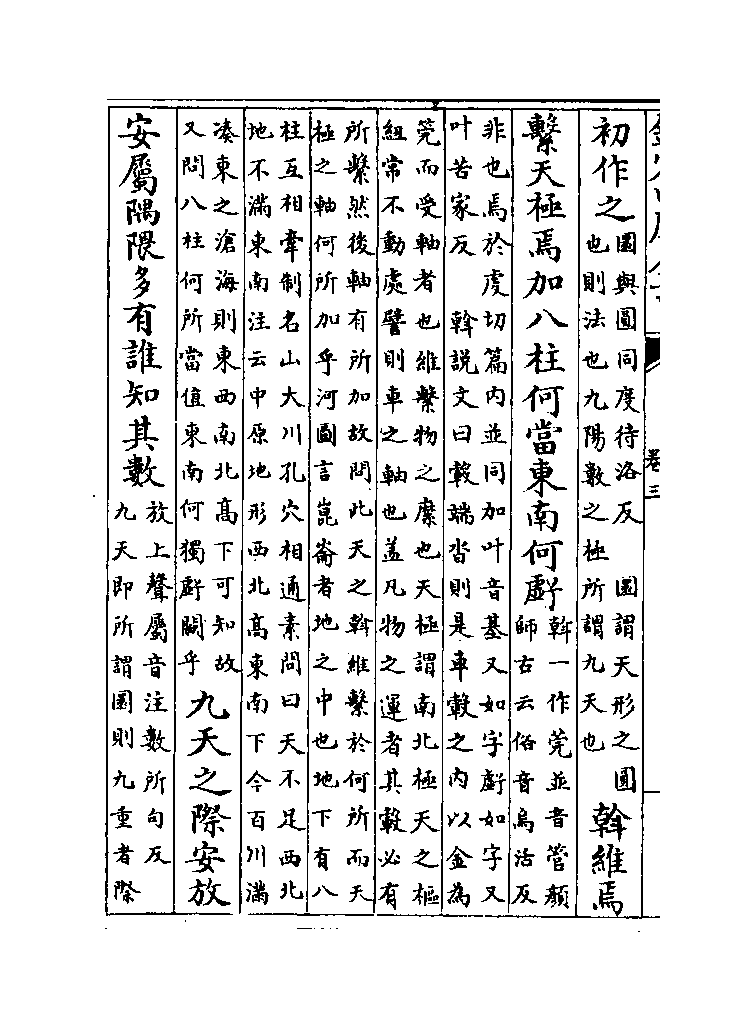 卷三
初作之
圜與圓同度待洛反　圜謂天形之圓
也則法也九陽數之極所謂九天也
斡維焉
繫天極焉加八柱何當東南何虧
斡一作筦並音管顏
師古云俗音烏活反
非也焉於虔切篇内並同加叶音基又如字虧如字又
叶苦家反　斡説文曰轂端沓則是車轂之内以金為
筦而受軸者也維繫物之縻也天極謂南北極天之樞
紐常不動處譬則車之軸也蓋凡物之運者其轂必有
所繫然後軸有所加故問此天之斡維繫於何所而天
極之軸何所加乎河圖言崑崙者地之中也地下有八
柱互相牽制名山大川孔穴相通素問曰天不足西北
地不滿東南注云中原地形西北高東南下今百川滿
湊東之滄海則東西南北高下可知故
又問八柱何所當值東南何獨虧闕乎
九天之際安放
安屬隅隈多有誰知其數
放上聲屬音注數所句反
九天即所謂圜則九重者際